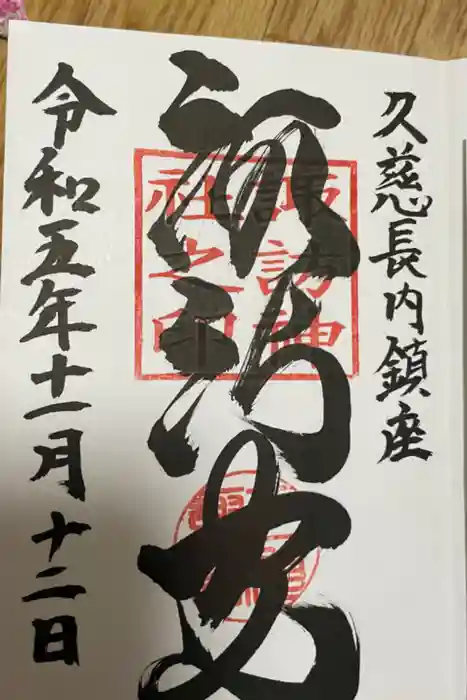 久慈長内鎮座
諏訪
諏訪神
社之印
令和五年十一月十二日